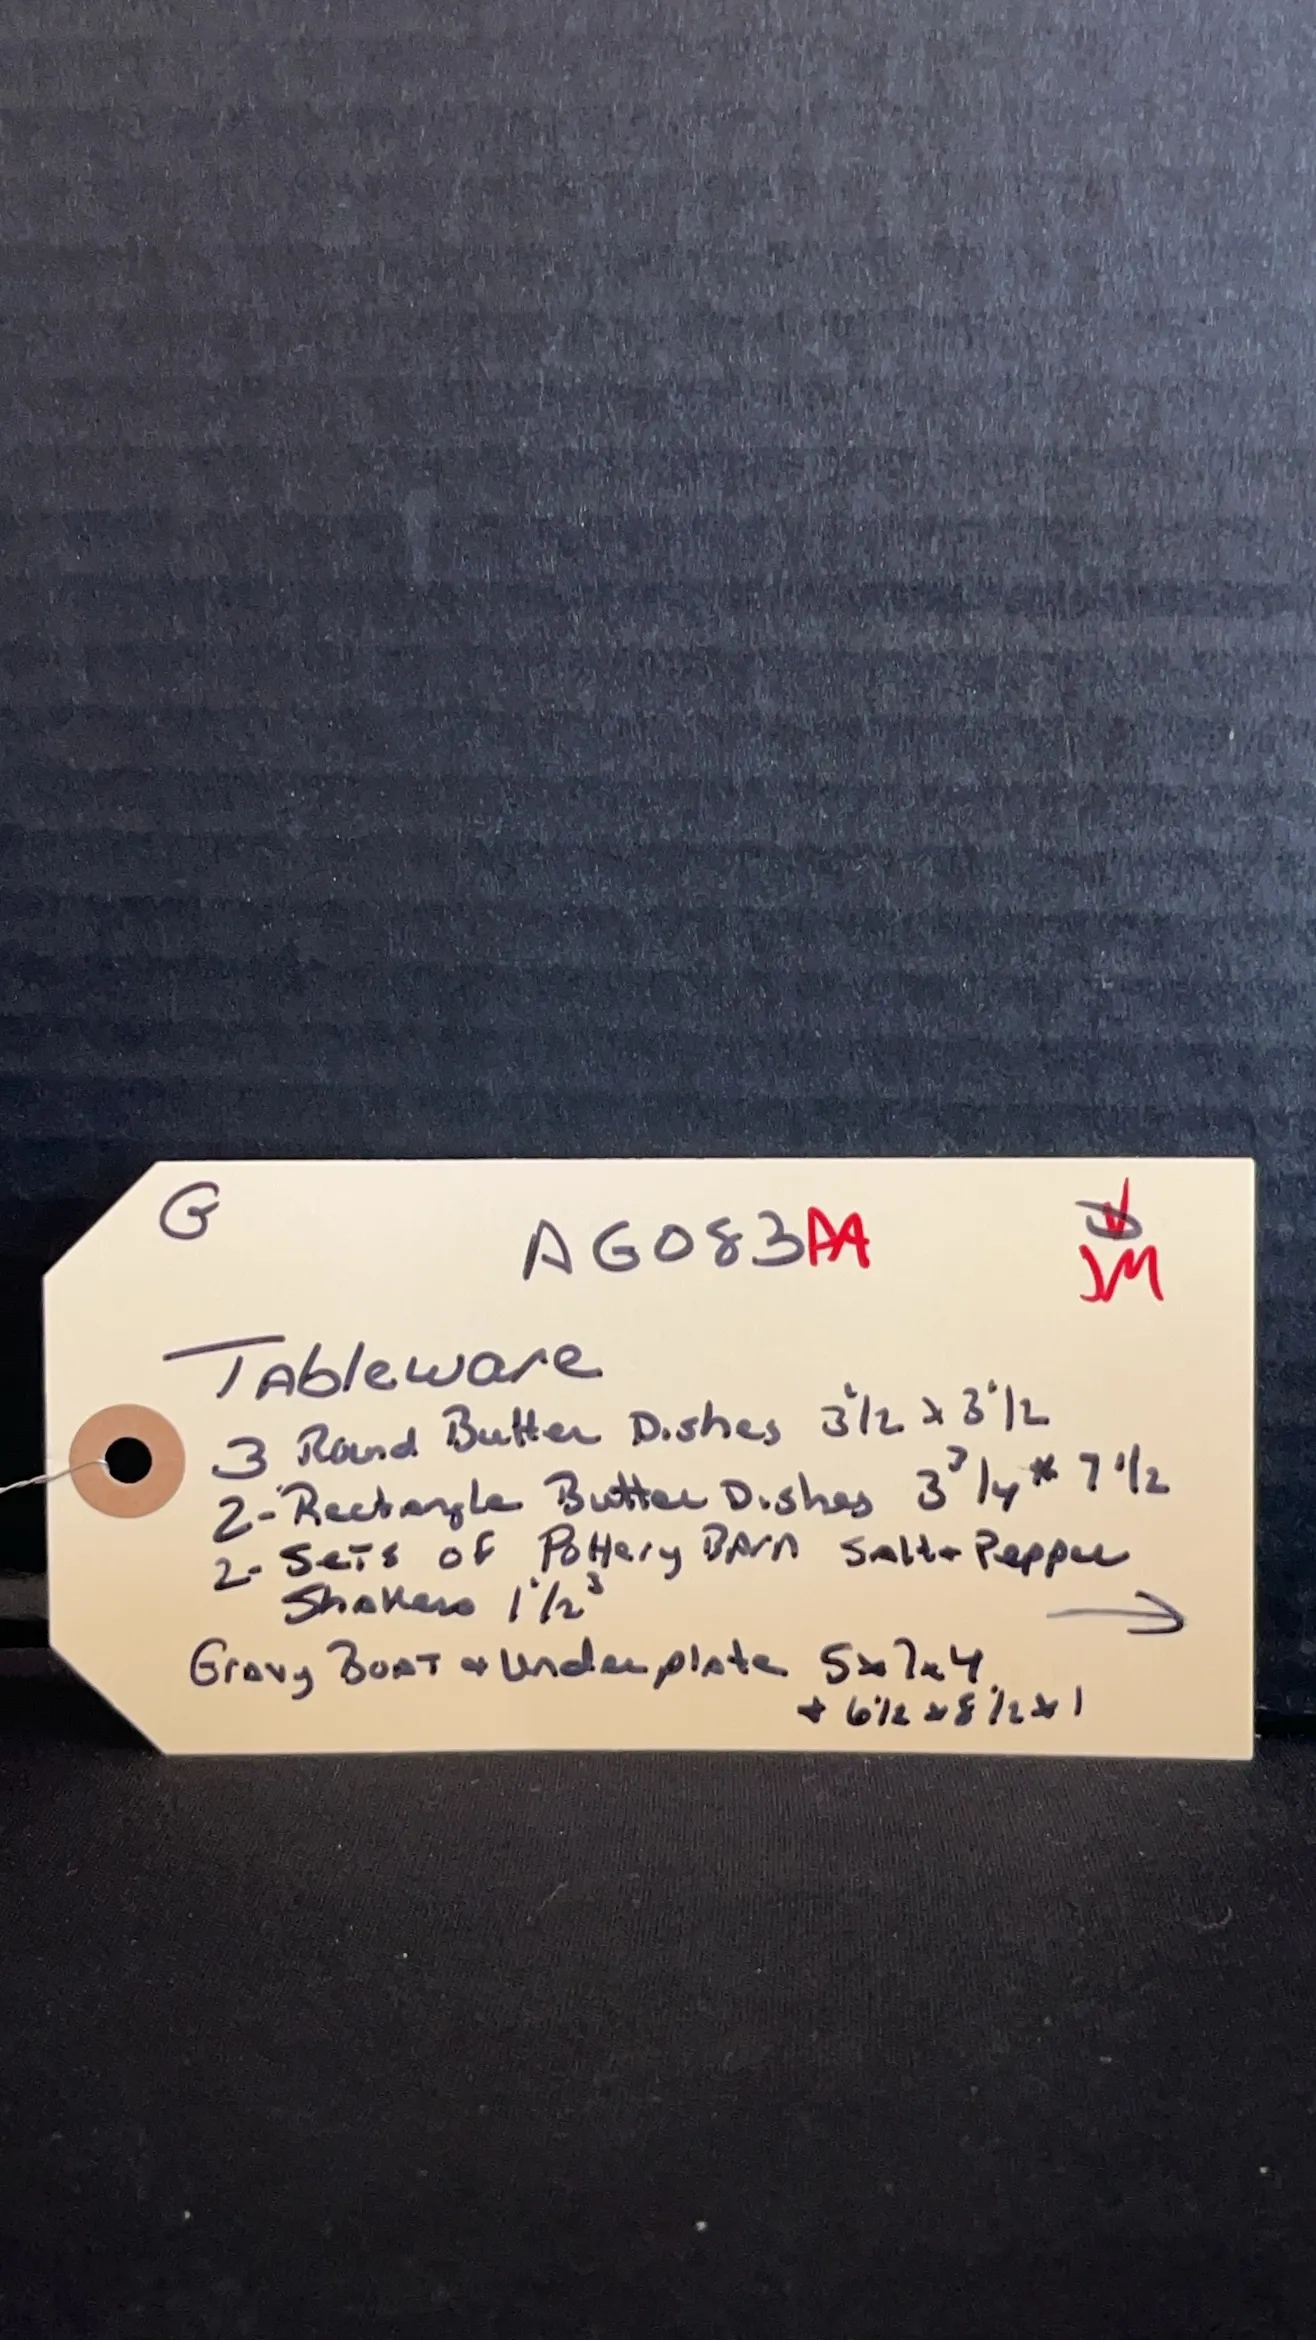 G
AG083AA
JM
Tableware
3 Round Butter Dishes 3 1/2 x 3 1/2
2-Rectangle Butter Dishes 3 3/4 x 7 1/2
2- Sets of Pottery Barn Salt + Pepper
Shakers 1 1/2 3
→
Gravy Boat + Underplate 5x7x4
+ 6 1/2 x 8 1/2 x 1